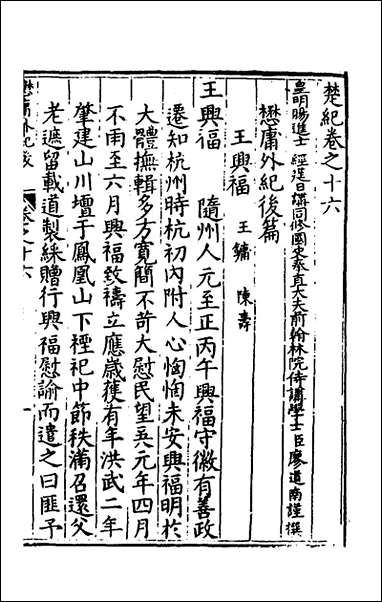 楚紀卷之十六
皇明賜進士 經筵日講同修國史奉直大夫前翰林院侍講學士臣廖道南謹撰
懋庸外紀後篇
王興福 王鏞 陳壽
王興福 隨州人元至正丙午興福守徽有善政
遷知杭州時杭初內附人心恟恟未安興福明於
大體撫輯多方寬簡不苛大慰民望吳元年四月
不雨至六月興福致禱立應歲獲有年洪武二年
肇建山川壇于鳳凰山下禋祀中節秩滿召還父
老遮留載道製綵贈行興福慰諭而遣之曰匪予